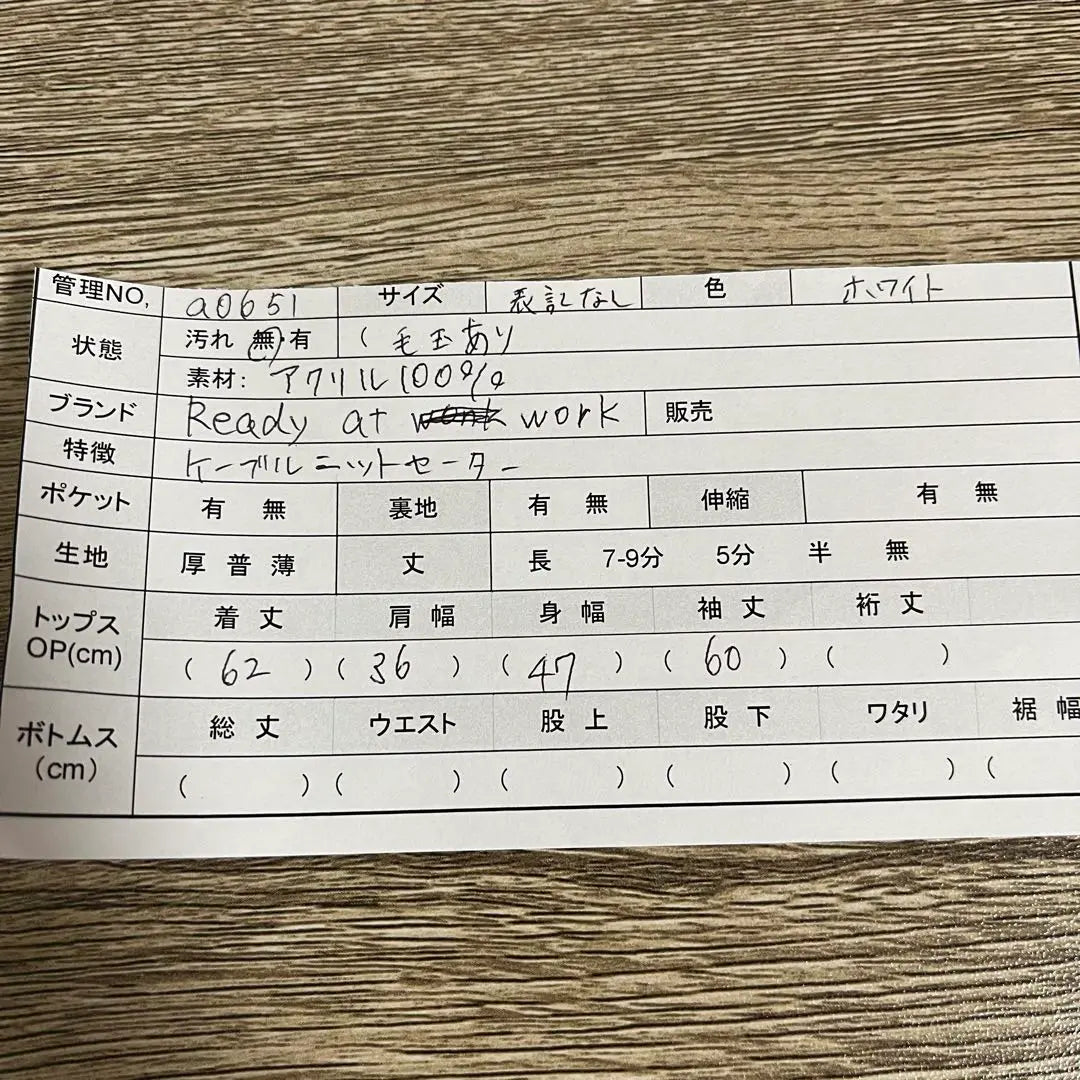 管理NO, a0651 サイズ 表記なし 色 ホワイト
状態 汚れ 無・有 ( 毛玉あり
素材: アクリル100%
ブランド Ready at work 販売
特徴 ケーブルニットセーター
ポケット 有 無 裏地 有 無 伸縮 有 無
生地 厚 普 薄 丈 長 7-9分 5分 半 無
トップス OP(cm) 着丈 肩幅 身幅 袖丈 裄丈
(62) (36) (47) (60) ( )
ボトムス (cm) 総丈 ウエスト 股上 股下 ワタリ 裾幅
( ) ( ) ( ) ( ) ( ) (